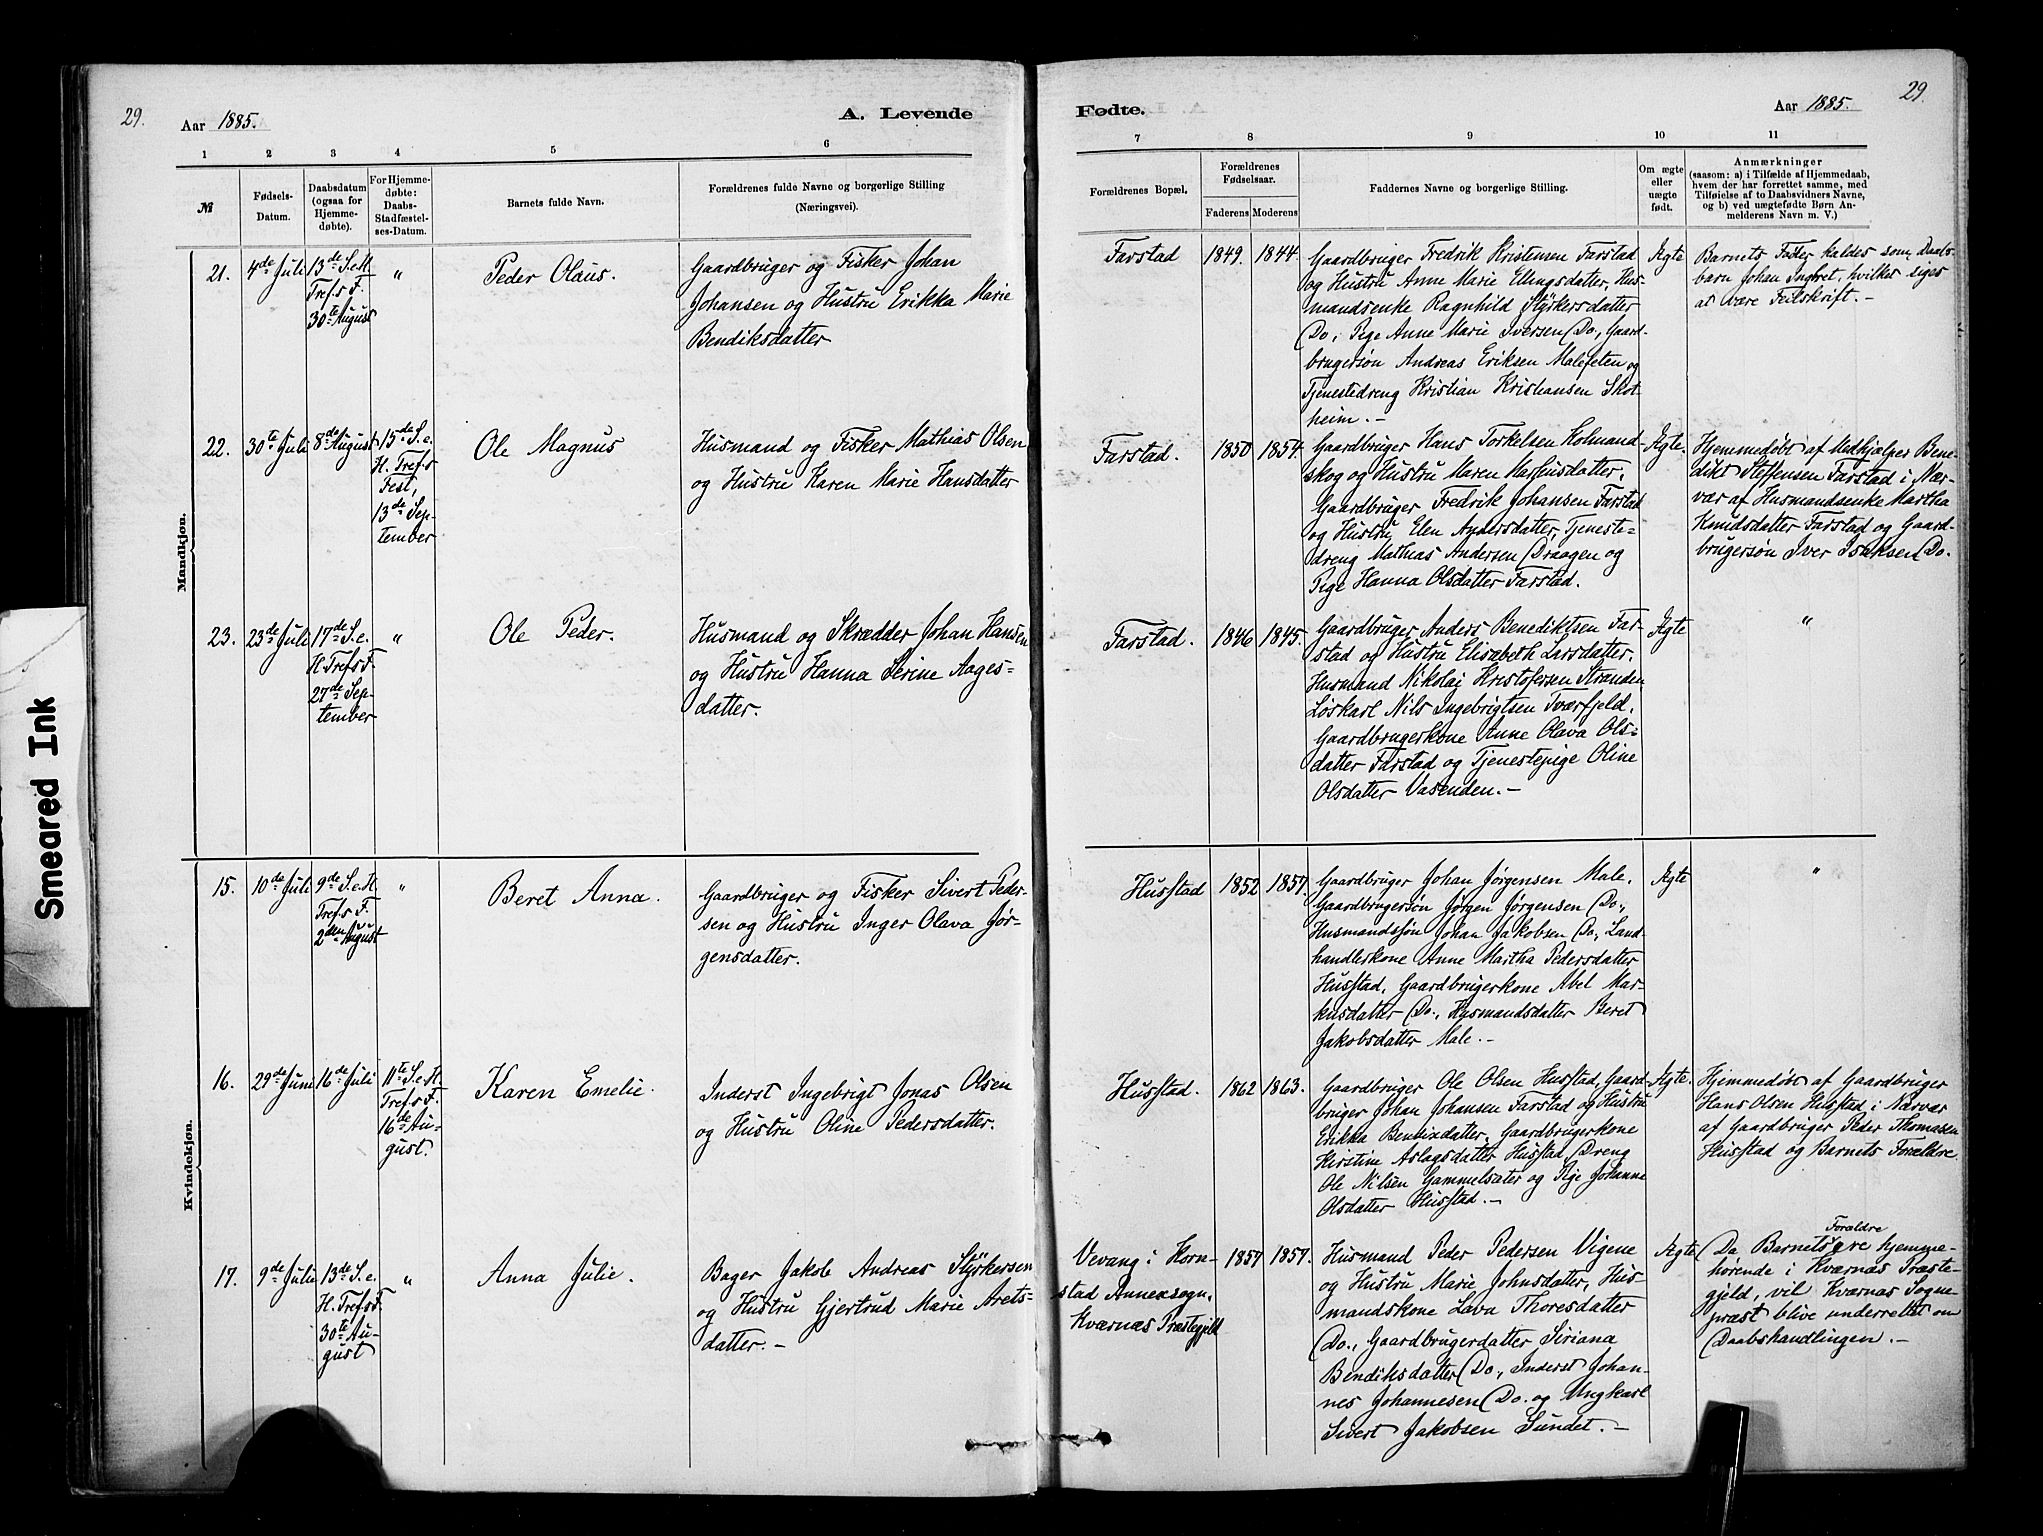 29.
Aar 1885.
A. Levende
1 2 3 4 5 6
№
Fødsels-
Datum.
Daabsdatum
(ogsaa for
Hjemme-
døbte).
For Hjemme-
døbte:
Daabs-
Stadfæstel-
ses-Datum.
Barnets fulde Navn.
Forældrenes fulde Navne og borgerlige Stilling
(Næringsvei).
Mandkjøn.
21.
4de Juli
13de S.e.H.
Tref.s F.
30te August
"
Peder Olaus.
Gaardbruger og Fisker Johan
Johansen og Hustru Erikka Marie
Bendiksdatter
22.
30te Juli
8de August
15de S.e.
H. Tref.s
Fest,
13de Sep-
tember
Ole Magnus
Husmand og Fisker Mathias Olsen
og Hustru Karen Marie Hansdatter
23.
23de Juli
17de S.e.
H. Tref.s F.
27de Sep-
tember
"
Ole Peder.
Husmand og Skrædder Johan Hansen
og Hustru Hanna Serine Aages-
datter.
Kvindekjøn.
15.
10de Juli
9de S.e.H.
Tref.s F.
2den August
"
Beret Anna.
Gaardbruger og Fisker Sivert Peder-
sen og Hustru Inger Olava Jør-
gensdatter.
16.
29de Juni
16de Juli
11te S.e.H.
Tref.s F.
16de Au-
gust.
Karen Emelie.
Inderst Ingebrigt Jonas Olsen
og Hustru Oline Pedersdatter.
17.
9de Juli
13de S.e.
H. Tref.s F.
30te Au-
gust
"
Anna Julie.
Bager Jakob Andreas Styrkersen
og Hustru Gjertrud Marie Arets-
datter.-
Smeared Ink
Fødte.
Aar 1885.
29.
7 8 9 10 11
Forældrenes Bopæl.
Forældrenes
Fødselsaar.
Faderens Moderens
Faddernes Navne og borgerlige Stilling.
Om ægte
eller
uægte
født.
Anmærkninger
(saasom: a) i Tilfælde af Hjemmedaab,
hvem der har forrettet samme, med
Tilføielse af to Daabsvidners Navne,
og b) ved uægtefødte Børn An-
melderens Navn m. V.)
Farstad
1849. 1844.
Gaardbruger Fredrik Kristensen Farstad
og Hustru Anne Marie Ellingsdatter, Hus-
mandsenke Ragnhild Styrkersdatter
Do, Pige Anne Marie Iversen Do, Gaard-
brugersøn Andreas Eriksen Malefeten og
Tjenestedreng Kristian Kristiansen Skot-
heim.-
Ægte
Barnets Fader kaldes som Daabs-
barn Johan Ingbret, hvilket siges
at være Feilskrift.-
Farstad.
1850 1854.
Gaardbruger Hans Torkelsen Holmand-
skog og Hustru Maren Mathiasdatter,
Gaardbruger Fredrik Johansen Farstad
og Hustru Elen Andersdatter, Tjeneste-
dreng Mathias Andersen Draagen og
Pige Hanna Olsdatter Farstad.
Ægte.
Hjemmedøbt af Medhjælper Bene-
dikt Steffensen Farstad i Nær-
vær af Husmandsenke Martha
Knudsdatter Farstad og Gaard-
brugersøn Iver Isaksen Do.
Farstad.
1846 1845.
Gaardbruger Anders Benediktsen Far-
stad og Hustru Elisabeth Larsdatter,
Husmand Nikolai Kristofersen Stranden
Løskarl Nils Ingebrigtsen Tværfjeld,
Gaardbrugerkone Anne Olava Ols-
datter Farstad og Tjenestepige Oline
Olsdatter Vasenden.-
Ægte
"
Husstad
1852 1857.
Gaardbruger Johan Jørgensen Male,
Gaardbrugersøn Jørgen Jørgensen Do.,
Husmandssøn Johan Jakobsen Do., Land-
handlerkone Anne Martha Pedersdatter
Husstad, Gaardbrugerkone Abel Mar-
kusdatter Do., Husmandsdatter Beret
Jakobsdatter Male.-
Ægte
"
Husstad.
1862 1863.
Gaardbruger Ole Olsen Husstad, Gaard-
bruger Johan Johansen Farstad og Hustru
Erikka Bentixdatter, Gaardbrugerkone
Kirstine Aslagsdatter Husstad Dreng
Ole Nilsen Gammelsæter og Pige Johanne
Olsdatter Husstad.-
Ægte.
Hjemmedøbt af Gaardbruger
Hans Olsen Husstad i Nærvær
af Gaardbruger Peder Thomassen
Husstad og Barnets Forældre.
Vevang i Korn-
stad Annexsogn,
Kværnæs Præstegjeld
1857 1857.
Husmand Peder Pedersen Vigene
og Hustru Marie Johnsdatter, Hus-
mandskone Lava Thoresdatter
Do., Gaardbrugerdatter Siriana
Bendiksdatter Do., Inderst Johan-
nes Johannesen Do. og Ungkarl
Sivert Jakobsen Sundet.-
Ægte
Forældre
Da Barnets ere hjemme-
hørende i Kværnæs Præste-
gjeld, vil Kværnæs Sogne-
præst blive underrettet om
Daabshandlingen.-